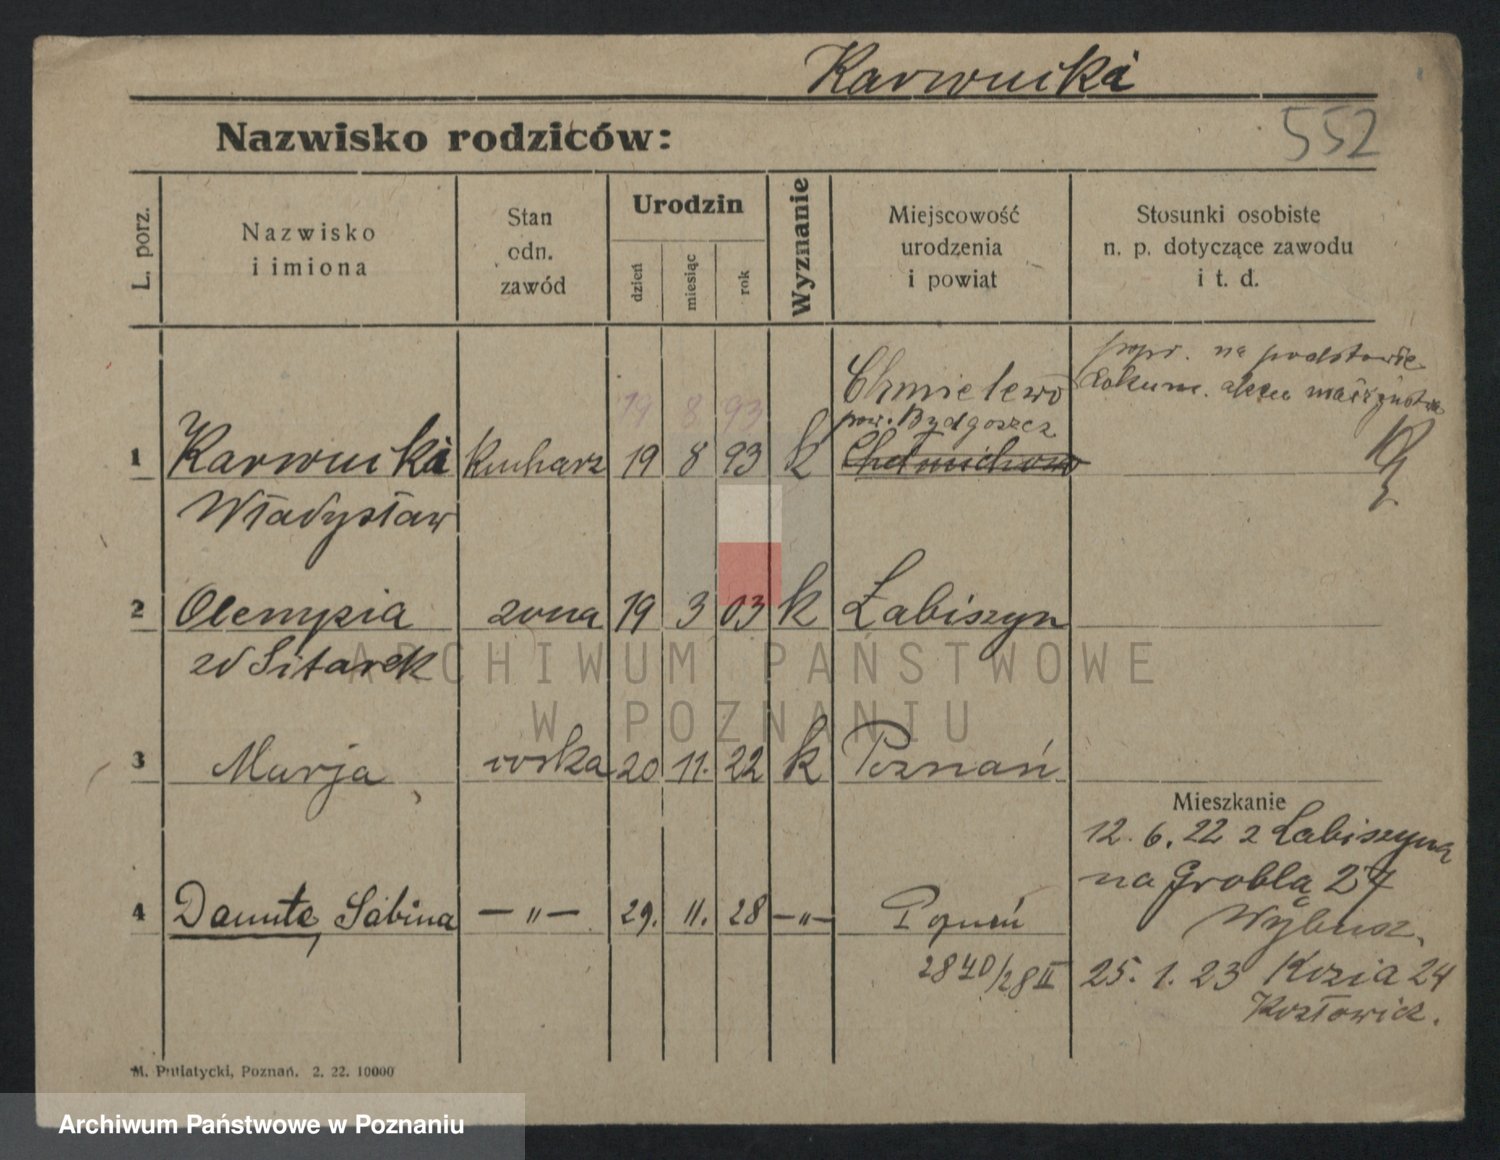 Karwicki
552
Nazwisko rodziców:
L. porz.
Nazwisko
i imiona
Stan
odn.
zawód
Urodzin
dzień
miesiąc
rok
Wyznanie
Miejscowość
urodzenia
i powiat
Stosunki osobiste
n. p. dotyczące zawodu
i t. d.
popr. na podstawie
dokum. aktu małżeństwa
Chmielewo
pow. Bydgoszcz
19 8 93
1 Karwicki kucharz 19 8 93 k
Władysław
2 Olempia żona 19 3 03 k Łabiszyn
zd Sitarek
3 Marja córka 20 11. 22 k Poznań
Mieszkanie
12. 6. 22 z Łabiszyna
na Groblą 27
4 Danuta, Sabina — " — 29. 11. 28 — " — Poznań
2840/28 II
25. 1. 23 Kozia 24
Kozłowicz.
M. Putiatycki, Poznań. 2. 22. 10000
ARCHIWUM PAŃSTWOWE
W POZNANIU
Archiwum Państwowe w Poznaniu